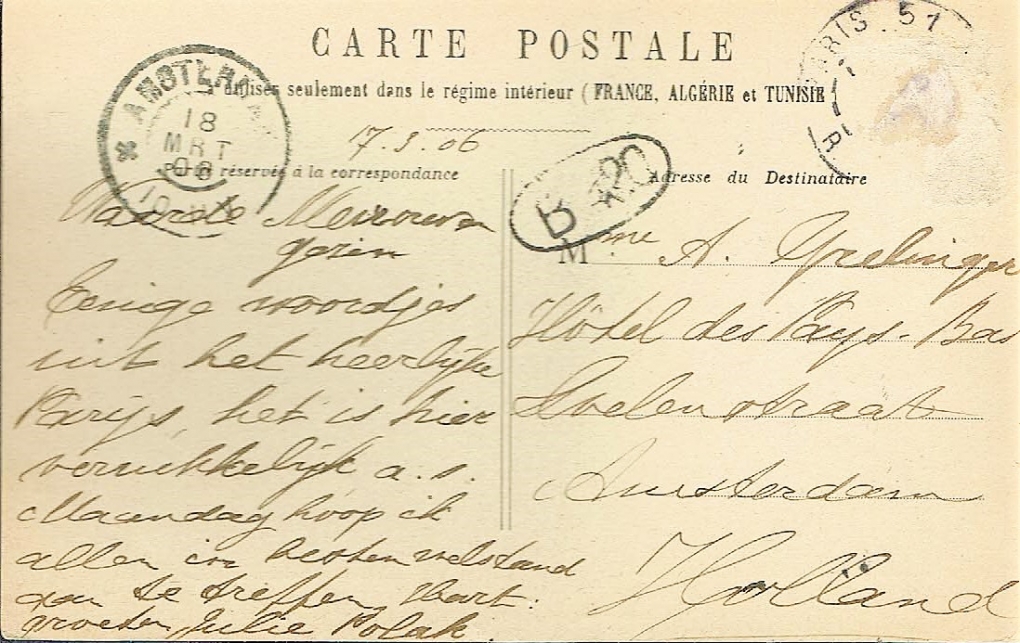 CARTE POSTALE
à utiliser seulement dans le régime intérieur (FRANCE, ALGÉRIE et TUNISIE)
PARIS . 51
R
AMSTERDAM
18
MRT
06
17.3.06
Partie réservée à la correspondance
Waarde Mevrouw en
gezin
Eenige woordjes
uit het heerlijke
Parijs, het is hier
verrukkelijk a.s.
Maandag hoop ik
allen in besten welstand
aan te treffen Hart.
groeten, Julie Polak.
Adresse du Destinataire
Mme A. Yzelinger
Hôtel des Pays-Bas
Doelenstraat
Amsterdam
Holland